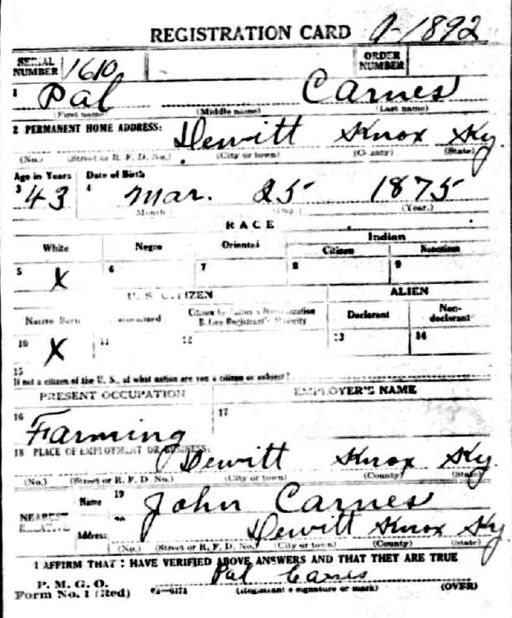 REGISTRATION CARD A-1892
SERIAL NUMBER 1610 ORDER NUMBER
1 Pal Carnes
(First name) (Middle name) (Last name)
2 PERMANENT HOME ADDRESS: Dewitt Knox Ky.
(No.) (Street or R. F. D. No.) (City or town) (County) (State)
Age in Years Date of Birth
3 43 4 Mar. 25 1875
(Month) (Day) (Year.)
RACE
White Negro Oriental Indian
Citizen Noncitizen
5 X 6 7 8 9
U. S. CITIZEN ALIEN
Native Born Naturalized Citizen by Father's Naturalization Before Registrant's Majority Declarant Non-declarant
10 X 11 12 13 14
15
If not a citizen of the U. S., of what nation are you a citizen or subject?
PRESENT OCCUPATION EMPLOYER'S NAME
16 Farming 17
18 PLACE OF EMPLOYMENT OR BUSINESS:
Dewitt Knox Ky.
(No.) (Street or R. F. D. No.) (City or town) (County) (State)
NEAREST RELATIVE Name 19 John Carnes
Address 20 Dewitt Knox Ky
(No.) (Street or R. F. D. No.) (City or town) (County) (State)
I AFFIRM THAT I HAVE VERIFIED ABOVE ANSWERS AND THAT THEY ARE TRUE
P. M. G. O. Pal Carnes
Form No. 1 (Red) (Registrant's signature or mark) (OVER)